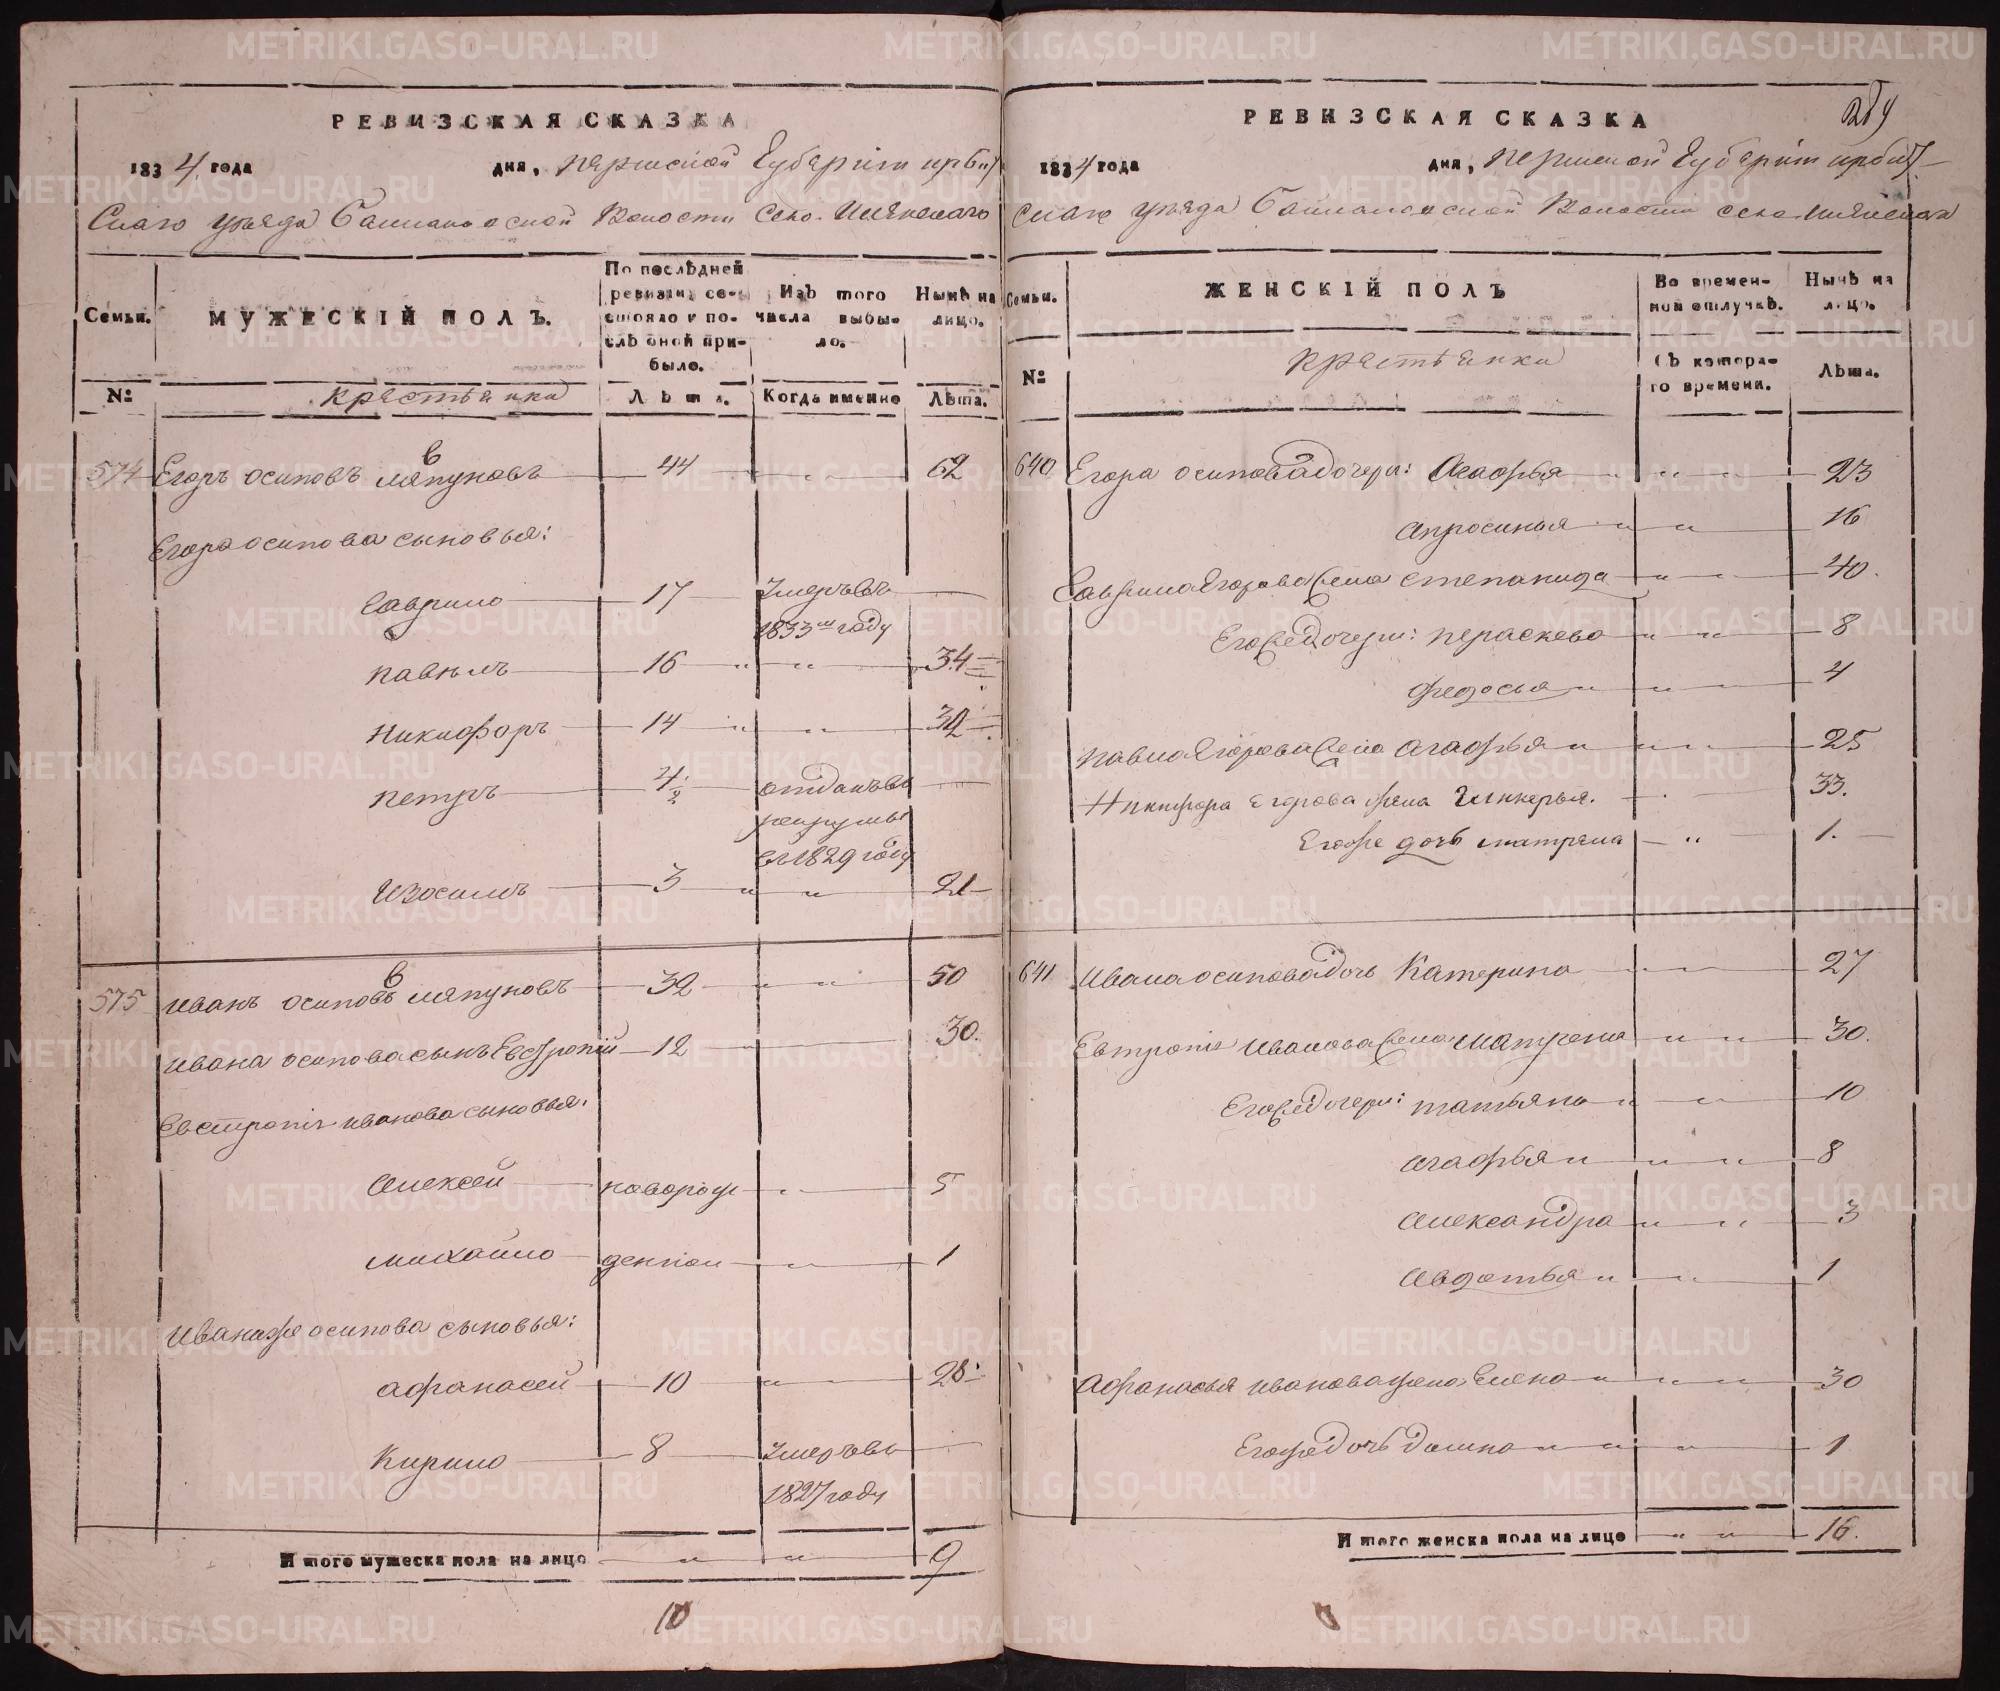 РЕВИЗСКАЯ СКАЗКА
1834 года дня, пермской Губерніи ирбит
скаго уѣзда Волости село
Семьи.
МУЖЕСКІЙ ПОЛЪ.
По послѣдней ревизіи со-
стояло и по-
слѣ оной при-
было.
Изъ того
числа выбы-
ло.
Нынѣ на
лицо.
№
крестьянки
Лѣта.
Когда именно
Лѣта.
574 Егоръ осиповъ ляпуновъ 44 62
в
Егора осипова сыновья:
Гаврило 17 Умеръ въ
1833мъ году
павелъ 16 34
Никифоръ 14 32
петръ 4 1/2 отданъ въ
рекруты
въ 1829 году
Изосимъ 3 21
575 иванъ осиповъ ляпуновъ 32 50
в
ивана осипова сынъ Евстропій 12 30.
Евстропія иванова сыновья:
Алексей новорож 5
михайло денной 1
Ивана же осипова сыновья:
афанасей 10 28
Кирило 8 Умеръ въ
1827 году
Итого мужеска пола на лицо 9
10
РЕВИЗСКАЯ СКАЗКА
1834 года дня, пермской Губерніи ирбит-
скаго уѣзда Волости село
Семьи.
ЖЕНСКІЙ ПОЛЪ
Во времен-
ной отлучкѣ.
Нынѣ на
лицо.
№
крестьянки
Съ котора-
го времени.
Лѣта.
640 Егора осипова дочери: Агафья 23
Апросинья 16
Гаврила Егорова жена степанида 40.
Его же дочери: пераскева 8
федосья 4
павла Егорова жена агафья 25
Никифора Егорова жена Гликерья. 33.
Его же дочь матрена 1.
641 Ивана осипова дочь Катерина 27
Евтропія иванова жена матрена 30.
Его же дочери: татьяна 10
агафья 8
александра 3
Авдотья 1
Афанасья иванова жена Елена 30
Его же дочь домна 1
Итого женска пола на лицо 16.
METRIKI.GASO-URAL.RU